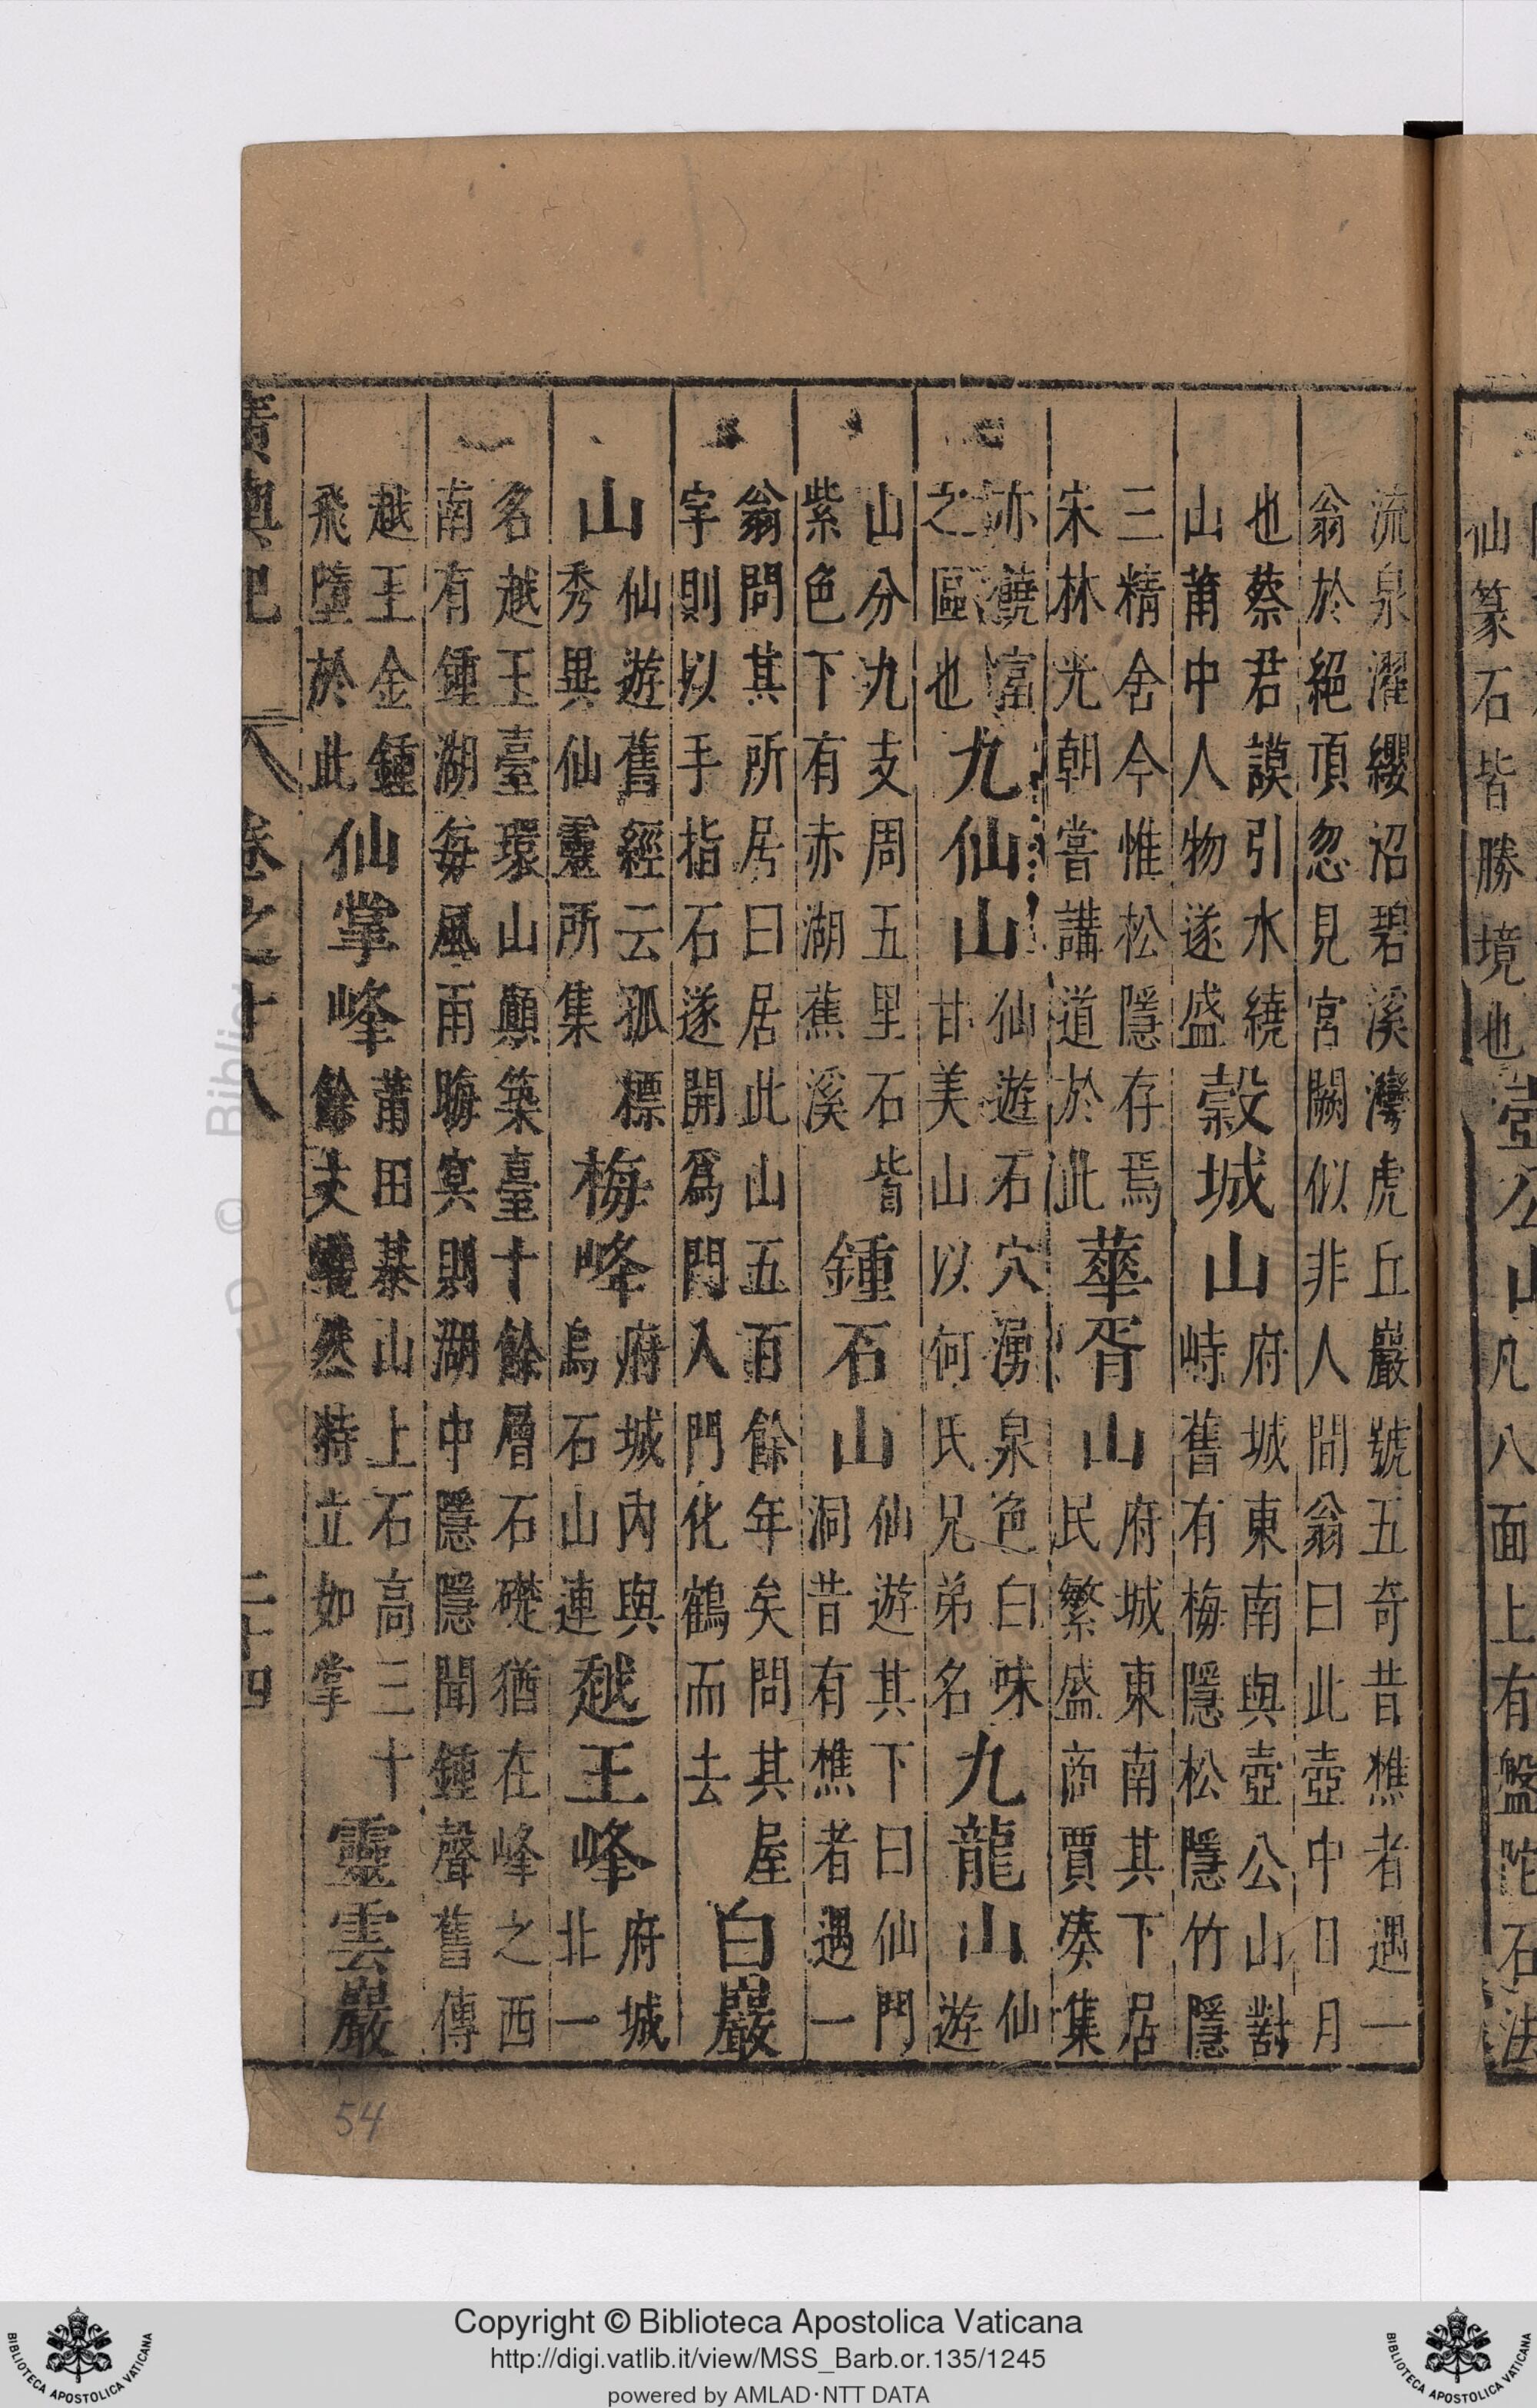 仙篆石皆勝境也壺公山凡八面上有盤陀石法
流泉濯纓沼碧溪灣虎丘巖號五奇昔樵者遇一
翁於絕頂忽見宮闕似非人間翁曰此壺中日月
也蔡君謨引水繞
山莆中人物遂盛
穀城山
府城東南與壺公山對
峙舊有梅隱松隱竹隱
三精舍今惟松隱存焉
宋林光朝嘗講道於此
華胥山
府城東南其下居
民繁盛商賈湊集
亦饒富
之區也
九仙山
仙遊石穴湧泉色白味
甘美山以何氏兄弟名
九龍山
仙
遊
山分九支周五里石皆
紫色下有赤湖蕉溪
鍾石山
仙遊其下曰仙門
洞昔有樵者遇一
翁問其所居曰居此山五百餘年矣問其屋
宇則以手指石遂開爲門入門化鶴而去
白巖
山
仙遊舊經云孤標
秀異仙靈所集
梅峰
府城內與
烏石山連
越王峰
府城
北一
名越王臺環山顛築臺十餘層石礎猶在峰之西
南有鍾湖每風雨晦冥則湖中隱隱聞鍾聲舊傳
越王金鍾
飛墮於此
仙掌峰
莆田綦山上石高三十
餘丈然特立如掌
靈雲巖
廣輿記
卷之十八
二十四
54
Copyright © Biblioteca Apostolica Vaticana
http://digi.vatlib.it/view/MSS_Barb.or.135/1245
powered by AMLAD·NTT DATA
BIBLIOTECA APOSTOLICA VATICANA
BIBLIOTECA APOSTOLICA VATICANA